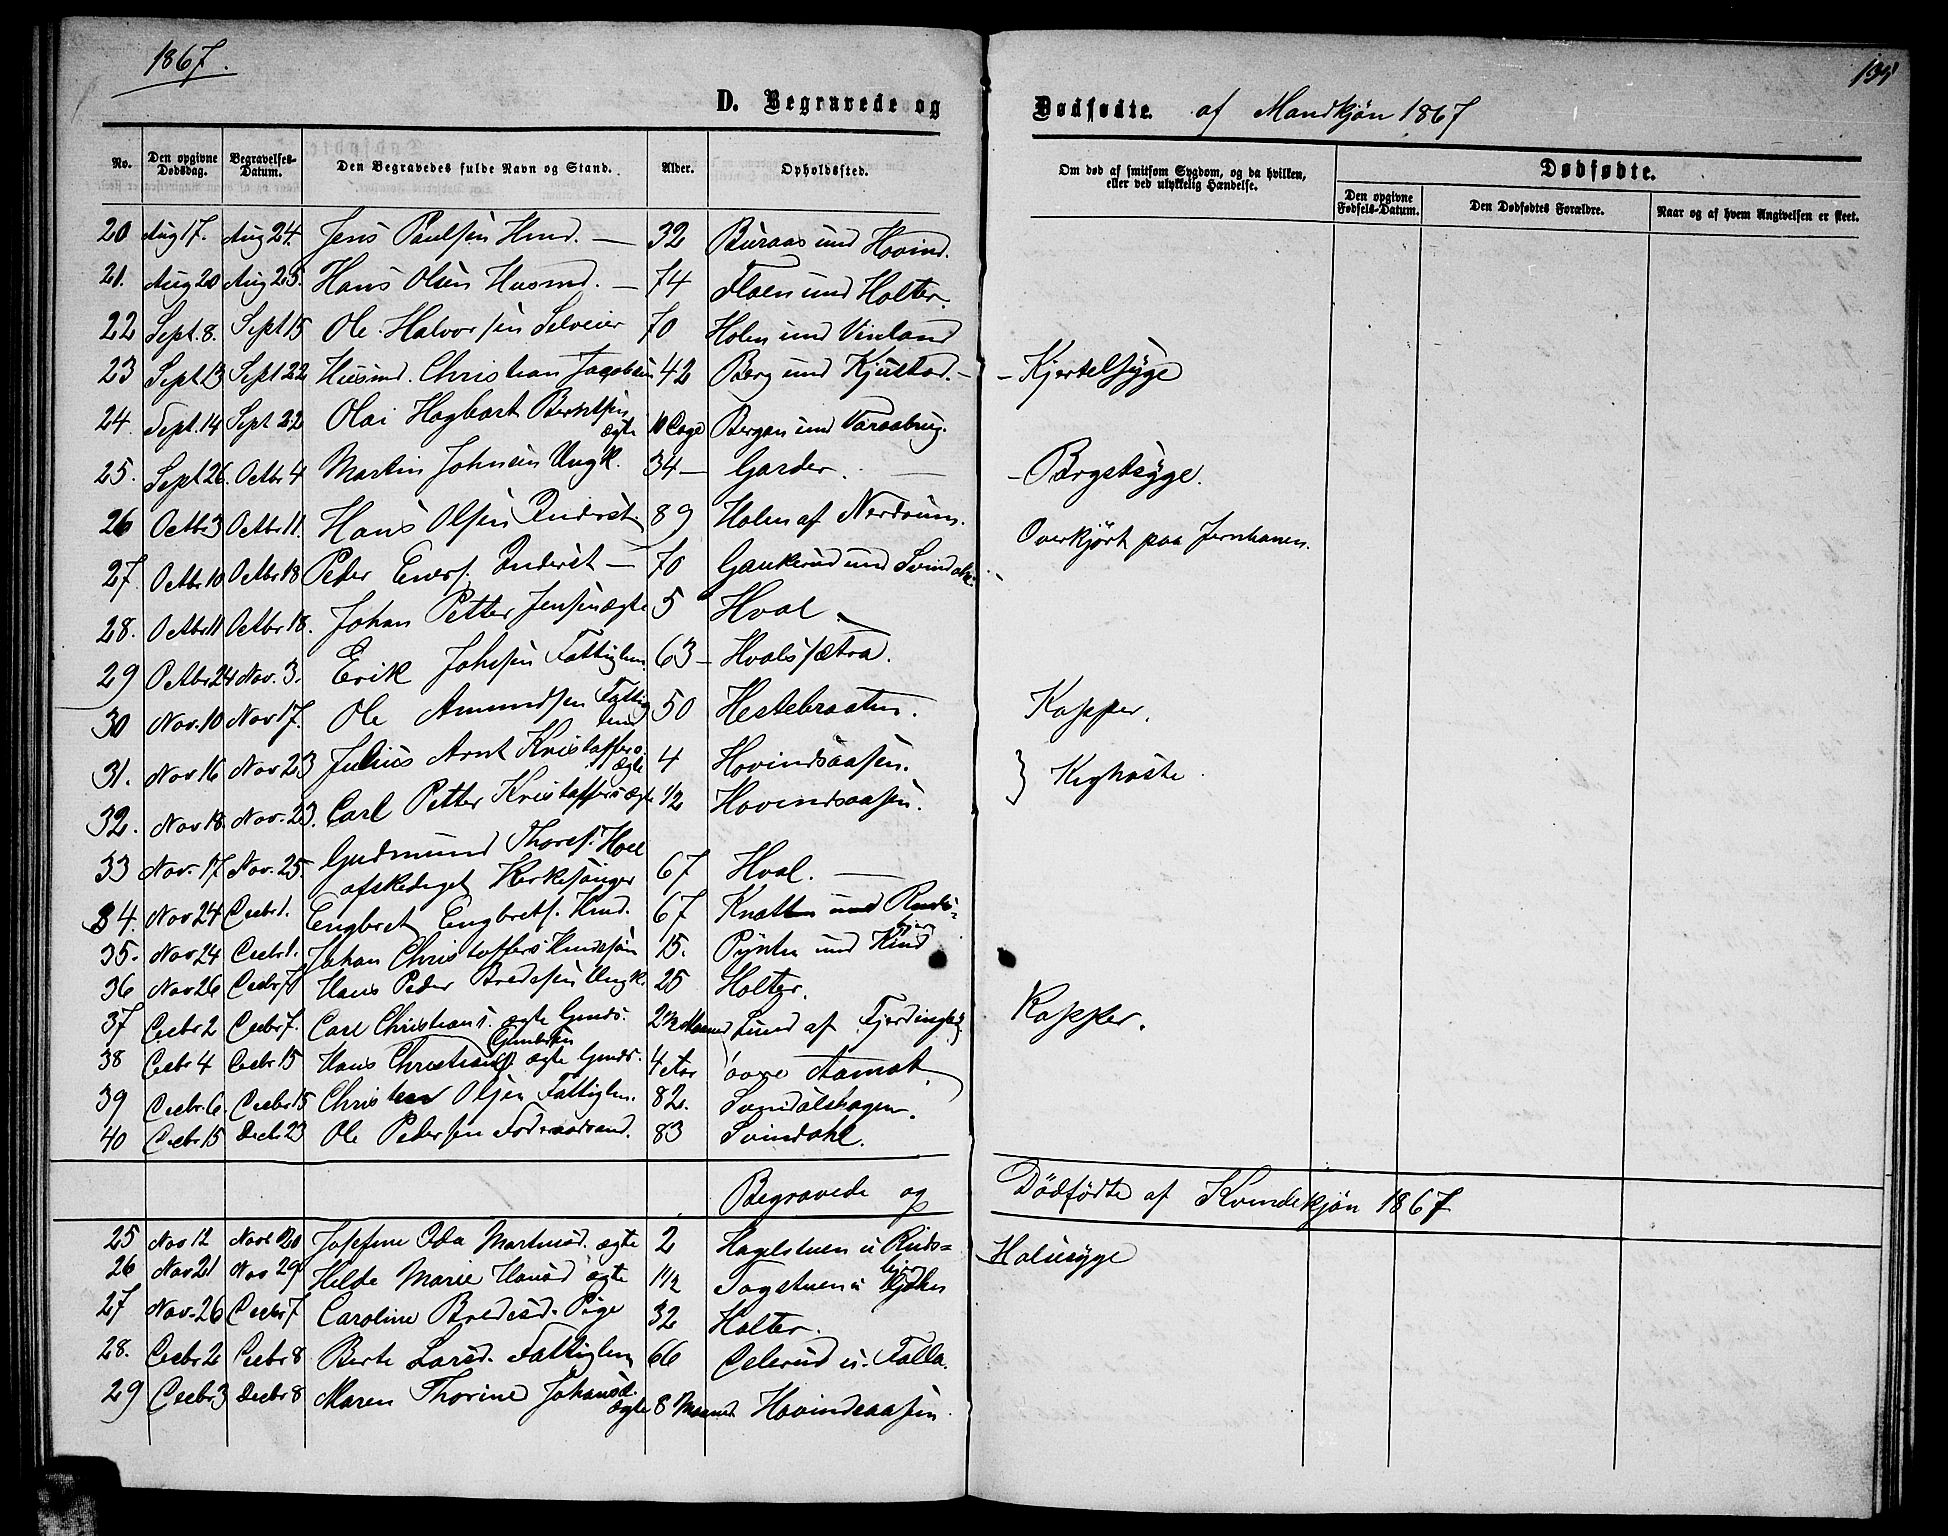 1867.
135
D. Begravede og Dødfødte. af Mandkjøn 1867
No. Den opgivne Dødsdag. Begravelses-Datum. Den Begravedes fulde Navn og Stand. Alder. Opholdssted. Om død af smitsom Sygdom, og da hvilken, eller ved ulykkelig Hændelse. Dødfødte.
Den opgivne Fødsels-Datum. Den Dødfødtes Forældre. Naar og af hvem Angivelsen er skeet.
20 Aug 17. Aug 24. Jens Paulsen Hmd. — 32 Buraas und Hovind.
21. Aug 20 Aug 25. Hans Olsen Husmd. — 74 Floen und Holter.
22 Sept. 8. Sept 15 Ole Halvorsen Selveier 70 Holen und Vinland
23 Sept 13 Sept 22 Husmd. Christian Jacobsen 42 Berg und Kjustad. — Kjertelsyge
24. Sept. 14 Sept 22 Olai Hagbart Berntsen ægte 10 Dage Bergan und Varaabrug.
25. Sept 26. Octbr 4 Martin Johnsen Ungk. 34 — Garder. — Brystsyge.
26 Octbr 3 Octbr 11. Hans Olsen Inderst. 89 Holen af Nordsum. Overkjørt paa Jernbanen.
27. Octbr 10 Octbr 18 Peder Evers. Inderst — 70 Gaukerud und Svindahl.
28. Octbr 11 Octbr 18. Johan Petter Jensen ægte 5 Hval.
29 Octbr 24 Nov. 3. Erik Johsen Fattiglem. 63 — Hvalssætra.
30 Nov. 10 Nov 17. Ole Amundsen Fattiglem 50 Hestebraaten. Kopper.
31. Nov 16 Nov 23 Julius Arnt Kristoffers. ægte 4 Hovindsaasen. } Kighoste
32. Nov 18 Nov. 23. Carl Petter Kristoffers ægte 1/2 Hovindsaasen.
33 Nov. 17 Nov. 25. Gudmund Thores. Hoel afskediget Kirkesanger 67 Hval. —
34. Nov 24 Decbr 1. Engbret Engbrets. Hmd. 67 Knatten und Rudsbjer
35. Nov 24 Decbr 1. Johan Christoffers Hmdssøn 15. Pynten und Kind
36 Nov 26 Decbr 7 Hans Peder Bredesen Ungk. 25 Holter.
37 Decbr 2 Decbr 7. Carl Christians. ægte Gmds. 2 1/2 Maaned Lund af Fjerdingby
38 Decbr 4 Decbr 15 Hans Christian Gunbersen ægte Gmds. 4 Aar øvre Aamot
39 Decbr 6 Decbr 15 Christen Olsen Fattiglem. 82. Svindalshagen.
40 Decbr 15 Decbr 23 Ole Pedersen Føderaadsmd. 83 Svindahl.
Begravede og Dødfødte af Kvindekjøn 1867
25 Nov 12 Novb 20 Josefine Oda Martinsd. ægte 2 Hagelstuen u Rudsbjer Halssyge
26 Nov 21 Nov 29 Helde Marie Hansd ægte 1 1/2 Togstuen u
27 Nov. 26 Decbr 7 Caroline Bredesd. Pige 32 Holter.
28. Decbr 2 Decbr 8 Berte Larsd. Fattiglem 66 Delerud u. Falla.
29 Decbr 3 Decbr 8 Maren Thorine Johansd. ægte 8 Maaned Hovindsaasen